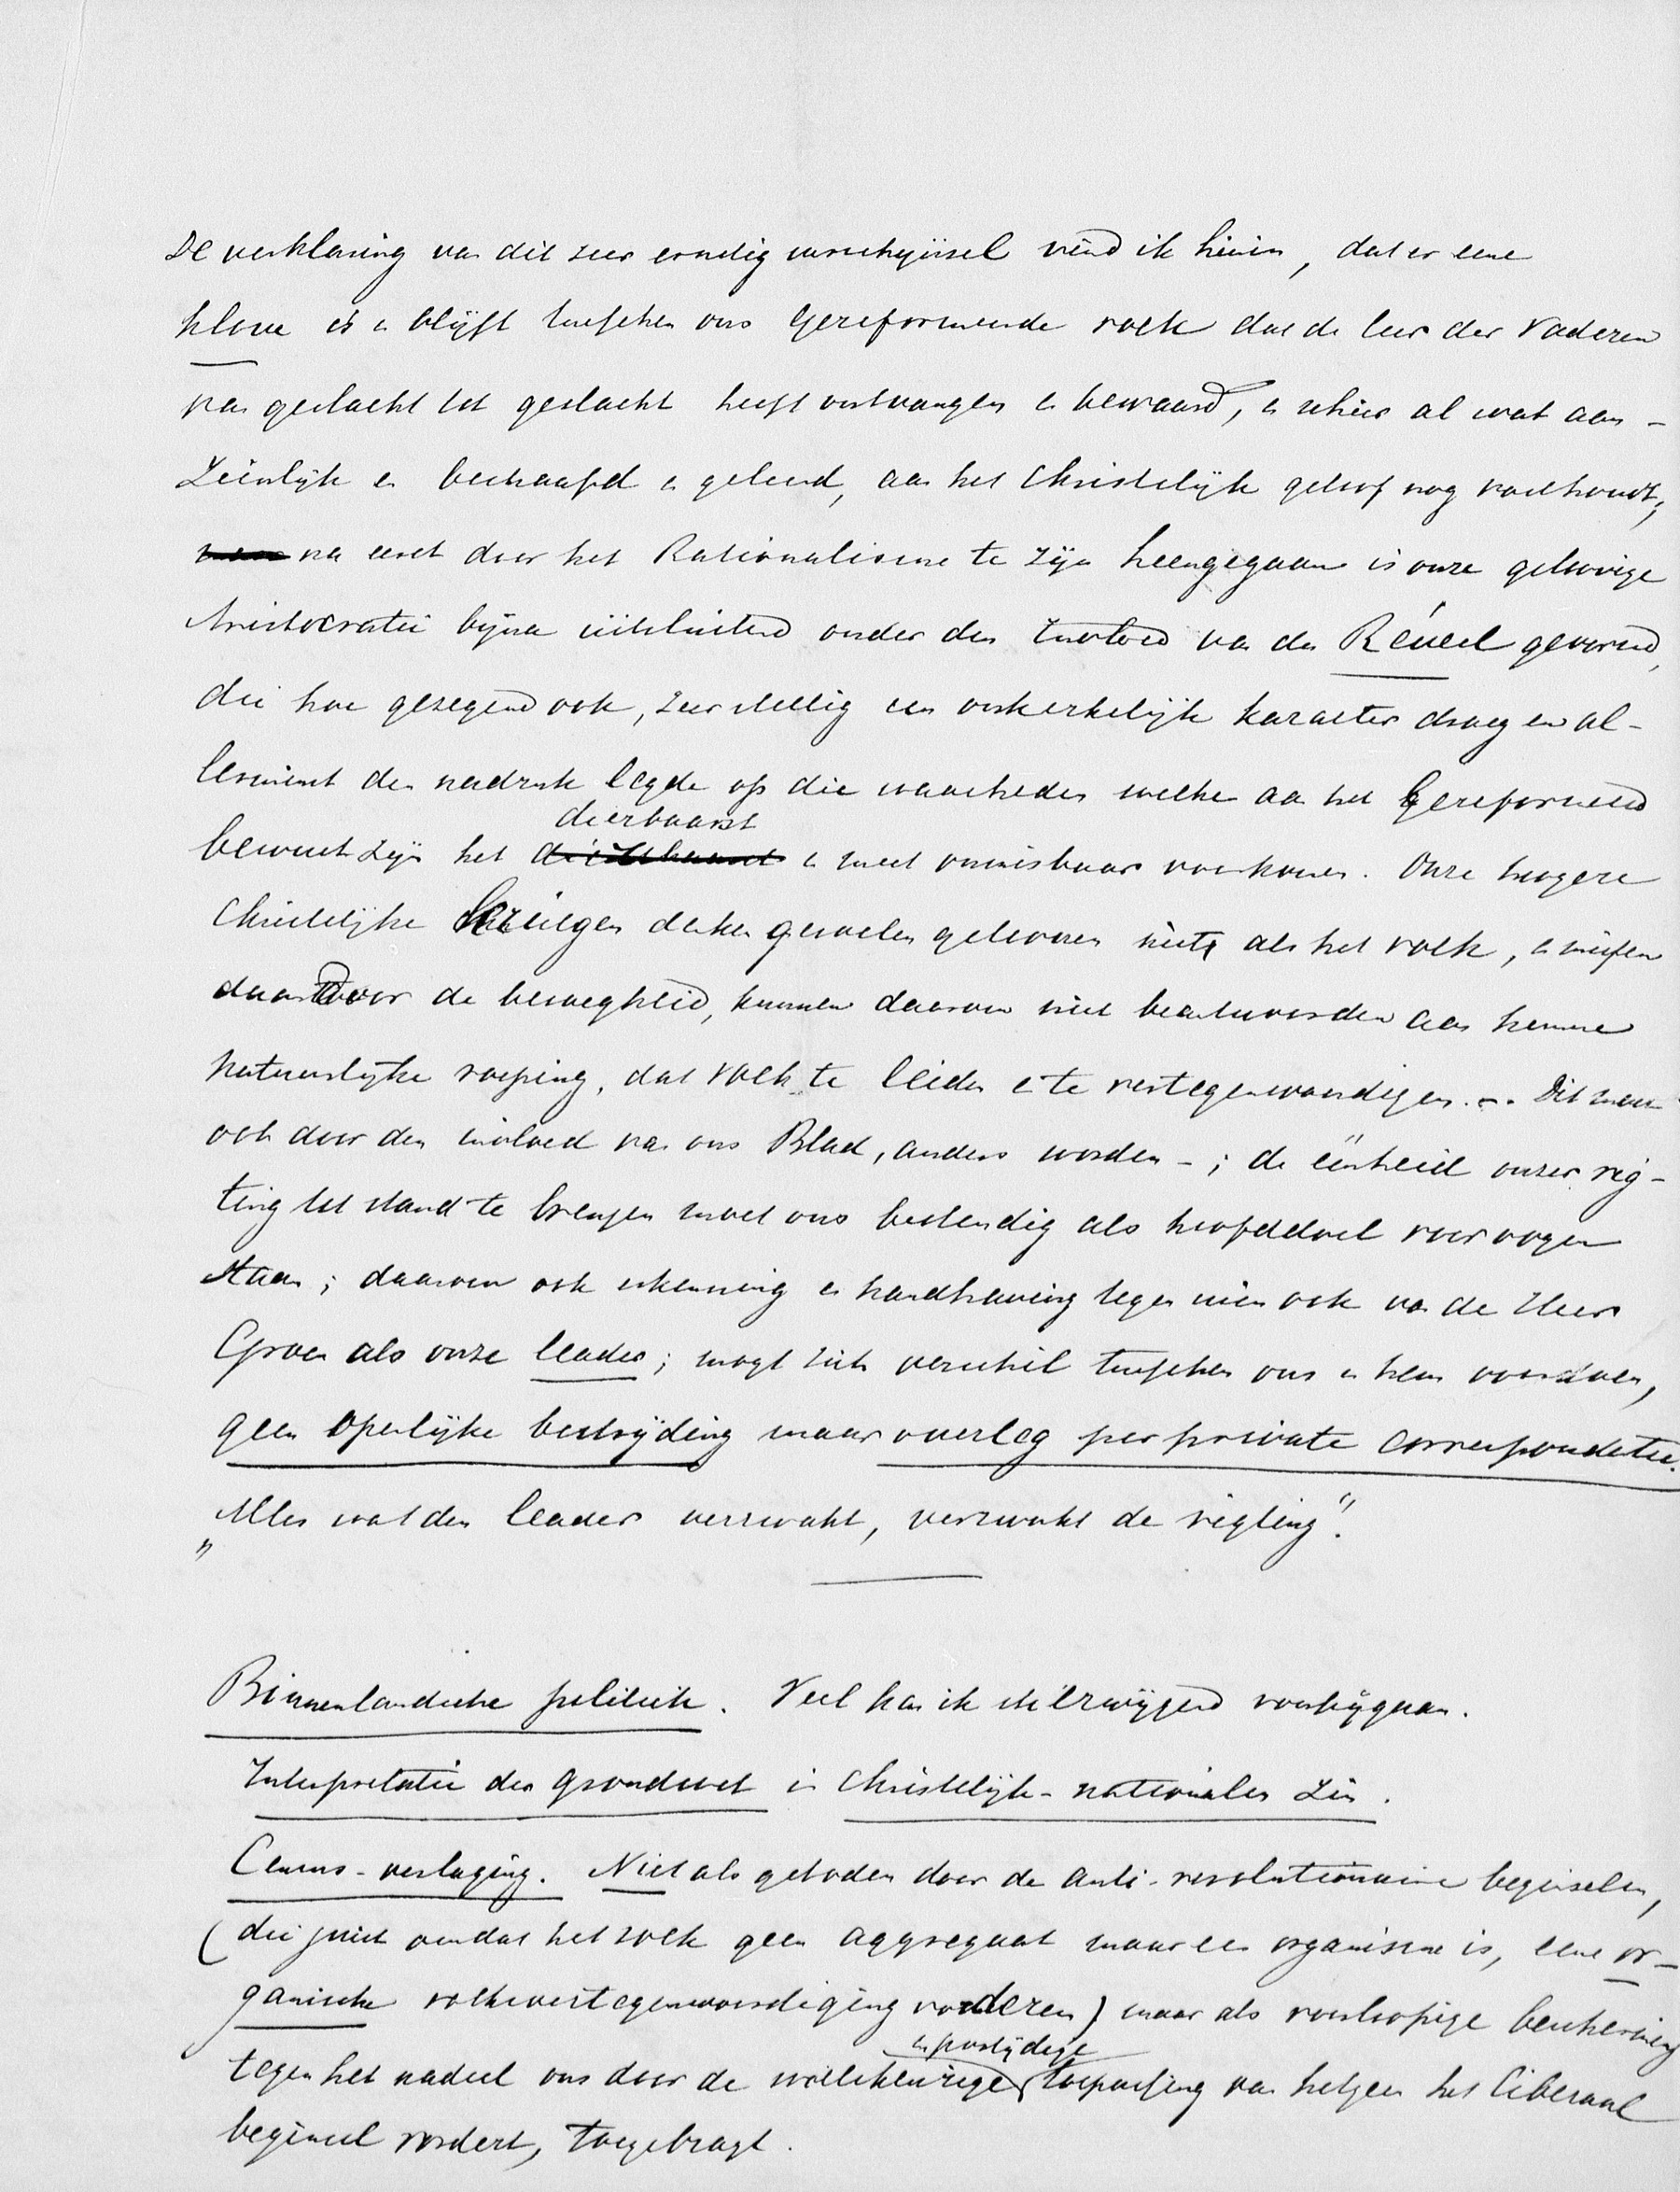 De verklaring van dit zeer ernstig verschijnsel vind ik hierin, dat er eene
klove is en blijft tusschen ons Gereformeerde volk dat de leer der Vaderen
van geslacht tot geslacht heeft ontvangen en bewaard, en schier al wat aan-
zienlijk en beschaafd en geleerd, aan het Christelijk geloof nog vasthoudt;
na eerst door het Rationalisme te zijn heengegaan is onze geloovige
Aristocratie bijna uitsluitend onder den invloed van den Réveil gevormd,
die hoe gezegend ook, zeer stellig een onkerkelijk karakter droeg en al-
lerminst den nadruk legde op die waarheden welke aan het Gereformeerd
bewustzijn het dierbaarst en meest onmisbaar voorkomen. Onze hoogere
Christelijke kringen denken gevoelen gelooven niet als het volk, en missen
daardoor de bevoegheid, kunnen daarom niet beantwoorden aan hunne
natuurlijke roeping, dat volk te leiden en te vertegenwoordigen. -. Dit moet
ook door den invloed van ons Blad, anders worden -; de eenheid onzer rig-
ting tot stand te brengen moet ons bestendig als hoofddoel voor oogen
staan; daarom ook erkenning en handhaving tegen wien ook van de Heer
Groen als onze leader; mogt zich verschil tusschen ons en hem voordoen,
geen openlijke bestrijding maar overleg per private correspondentie.
„Alles wat den leader verzwakt, verzwakt de rigting".
Binnenlandsche politiek. Veel kan ik stilzwijgend voorbijgaan.
Interpretatie der grondwet in Christelijk-nationalen zin.
Census-verlaging. Niet als geboden door de anti-revolutionaire beginselen,
(die juist omdat het volk geen aggregaat maar een organisme is, eene or-
ganische volksvertegenwoordiging vorderen) maar als voorloopige bescherming
tegen het nadeel ons door de willekeurige en partijdige toepassing van hetgeen het liberaal
beginsel vordert, toegebragt.